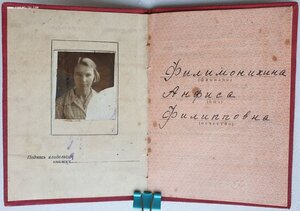 Филимонихина
(фамилия)
Анфиса
(имя)
Филипповна
(отчество)
Подпись владельца
книжки